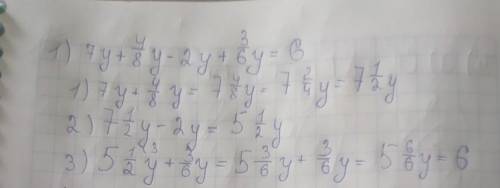 1) 7y + 4/8 y - 2y + 3/6 y = 6
1) 7y + 4/8 y = 7 4/8 y = 7 2/4 y = 7 1/2 y
2) 7 1/2 y - 2y = 5 1/2 y
3) 5 1/2 y + 3/6 y = 5 3/6 y + 3/6 y = 5 6/6 y = 6